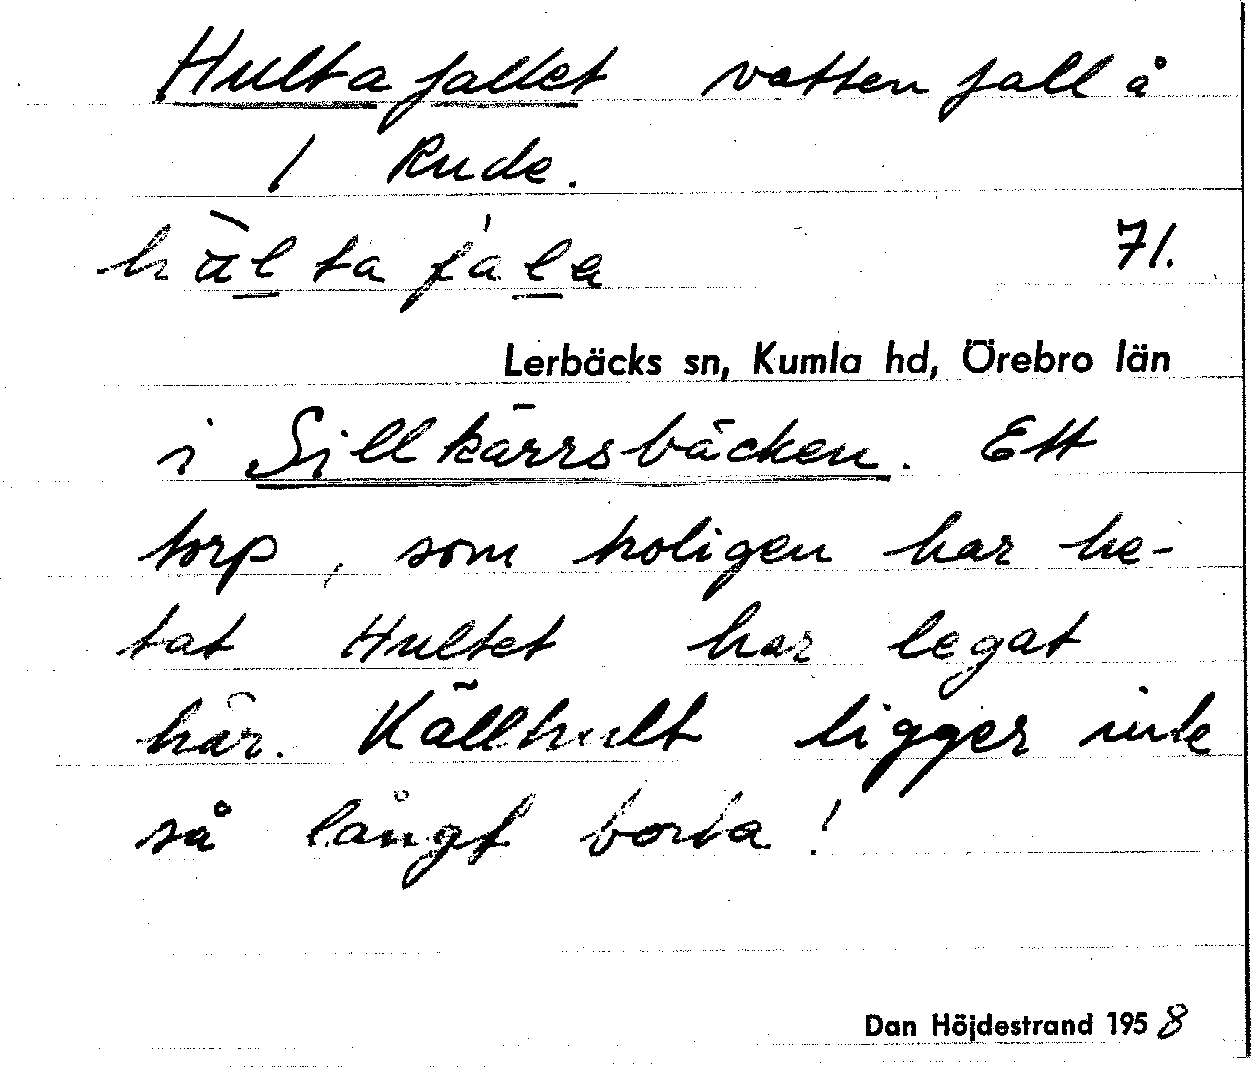 Hultafallet vattenfall å
1 Rude.
hùl̲ta fál̲a
71.
Lerbäcks sn, Kumla hd, Örebro län
i Sillkärrsbäcken. Ett
torp, som troligen har he-
tat Hultet har legat
här. Källhult ligger inte
så långt borta!
Dan Höjdestrand 1958